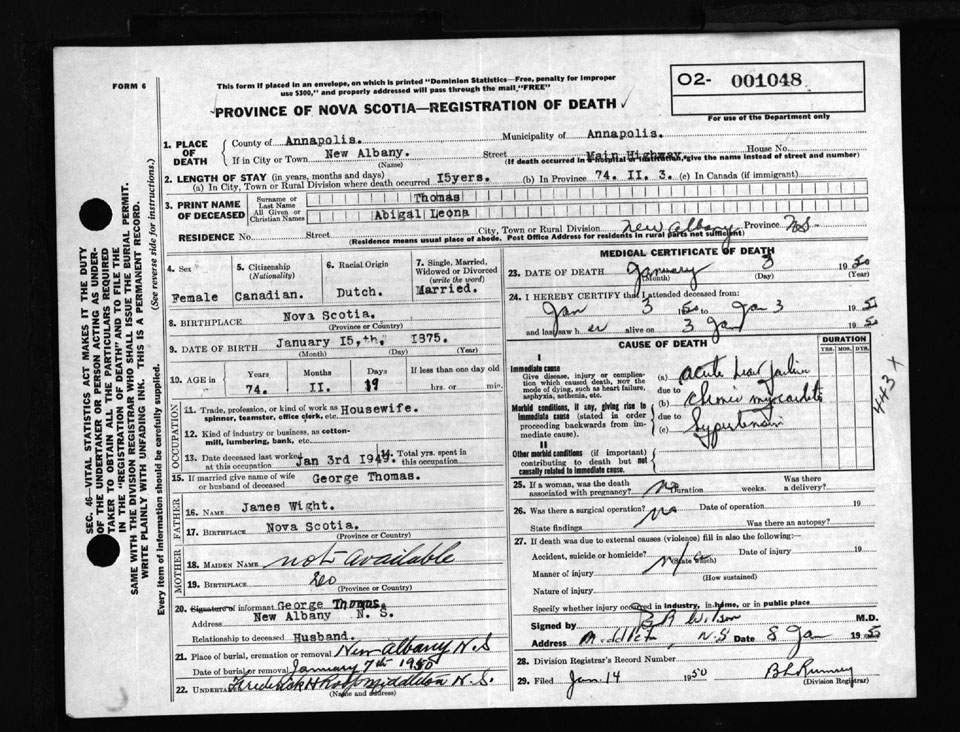 FORM 6
This form if placed in an envelope, on which is printed "Dominion Statistics—Free, penalty for improper
use $300," and properly addressed will pass through the mail "FREE"
O2- 001048
For use of the Department only
PROVINCE OF NOVA SCOTIA—REGISTRATION OF DEATH
1. PLACE OF DEATH
County of Annapolis. Municipality of Annapolis.
If in City or Town New Albany. Street Main Highway House No.
(Name) (If death occurred in a hospital or institution, give the name instead of street and number)
2. LENGTH OF STAY (in years, months and days)
(a) In City, Town or Rural Division where death occurred I5yers. (b) In Province 74. II. 3. (c) In Canada (if immigrant)
3. PRINT NAME OF DECEASED
Surname or Last Name Thomas
All Given or Christian Names Abigal Leona
RESIDENCE No. Street City, Town or Rural Division New Albany Province NS
(Residence means usual place of abode. Post Office Address for residents in rural parts not sufficient)
4. Sex
Female
5. Citizenship (Nationality)
Canadian.
6. Racial Origin
Dutch.
7. Single, Married, Widowed or Divorced (write the word)
Married.
8. BIRTHPLACE Nova Scotia.
(Province or Country)
9. DATE OF BIRTH January I5,th. I875.
(Month) (Day) (Year)
10. AGE in Years Months Days If less than one day old
74. II. 19 hrs. or min.
OCCUPATION
11. Trade, profession, or kind of work as Housewife.
spinner, teamster, office clerk, etc.
12. Kind of industry or business, as cotton-
mill, lumbering, bank, etc.
13. Date deceased last worked at this occupation Jan 3rd 1949. 14. Total yrs. spent in this occupation
15. If married give name of wife
or husband of deceased George Thomas.
FATHER
16. NAME James Wight.
17. BIRTHPLACE Nova Scotia.
(Province or Country)
MOTHER
18. MAIDEN NAME not available
19. BIRTHPLACE
(Province or Country)
20. Signature of informant George Thomas.
Address New Albany N. S.
Relationship to deceased Husband.
21. Place of burial, cremation or removal New Albany N.S
Date of burial or removal January 7th 1950
22. UNDERTAKER Frederick H Middleton N.S.
(Name and address)
MEDICAL CERTIFICATE OF DEATH
23. DATE OF DEATH January 3 1950
(Month) (Day) (Year)
24. I HEREBY CERTIFY that I attended deceased from:
Jan 3 1950 to Jan 3 1950
and last saw h er alive on 3 Jan 1950
CAUSE OF DEATH
DURATION
YRS. MOS. DYS.
I
Immediate cause
Give disease, injury or complication which caused death, not the mode of dying, such as heart failure, asphyxia, asthenia, etc.
(a) acute heart failure
due to
Morbid conditions, if any, giving rise to immediate cause (stated in order proceeding backwards from immediate cause).
(b) chronic myocarditis
due to
(c) Hypertension
II
Other morbid conditions (if important) contributing to death but not causally related to immediate cause.
443 X
25. If a woman, was the death associated with pregnancy? no Duration weeks. Was there a delivery?
26. Was there a surgical operation? no Date of operation 19
State findings Was there an autopsy?
27. If death was due to external causes (violence) fill in also the following:—
Accident, suicide or homicide? (State which) Date of injury 19
Manner of injury
(How sustained)
Nature of injury
Specify whether injury occurred in industry, in home, or in public place
Signed by Wilson M.D.
Address N.S Date 8 Jan 1950
28. Division Registrar's Record Number
29. Filed Jan 14 1950
(Division Registrar)
SEC. 46—VITAL STATISTICS ACT MAKES IT THE DUTY
OF THE UNDERTAKER OR PERSON ACTING AS UNDER-
TAKER TO OBTAIN ALL THE PARTICULARS REQUIRED
IN THE "REGISTRATION OF DEATH" AND TO FILE THE
SAME WITH THE DIVISION REGISTRAR WHO SHALL ISSUE THE BURIAL PERMIT.
WRITE PLAINLY WITH UNFADING INK. THIS IS A PERMANENT RECORD.
(See reverse side for instructions.)
Every item of information should be carefully supplied.